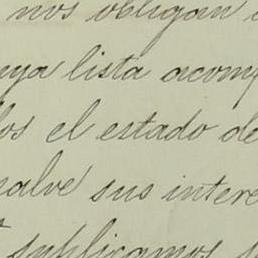 nos obligan
eya lista acomp
los el estado de
salve sus intere
suplicamos